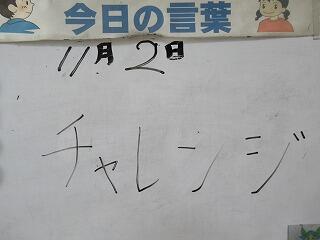 今日の言葉
11月2日
チャレンジ